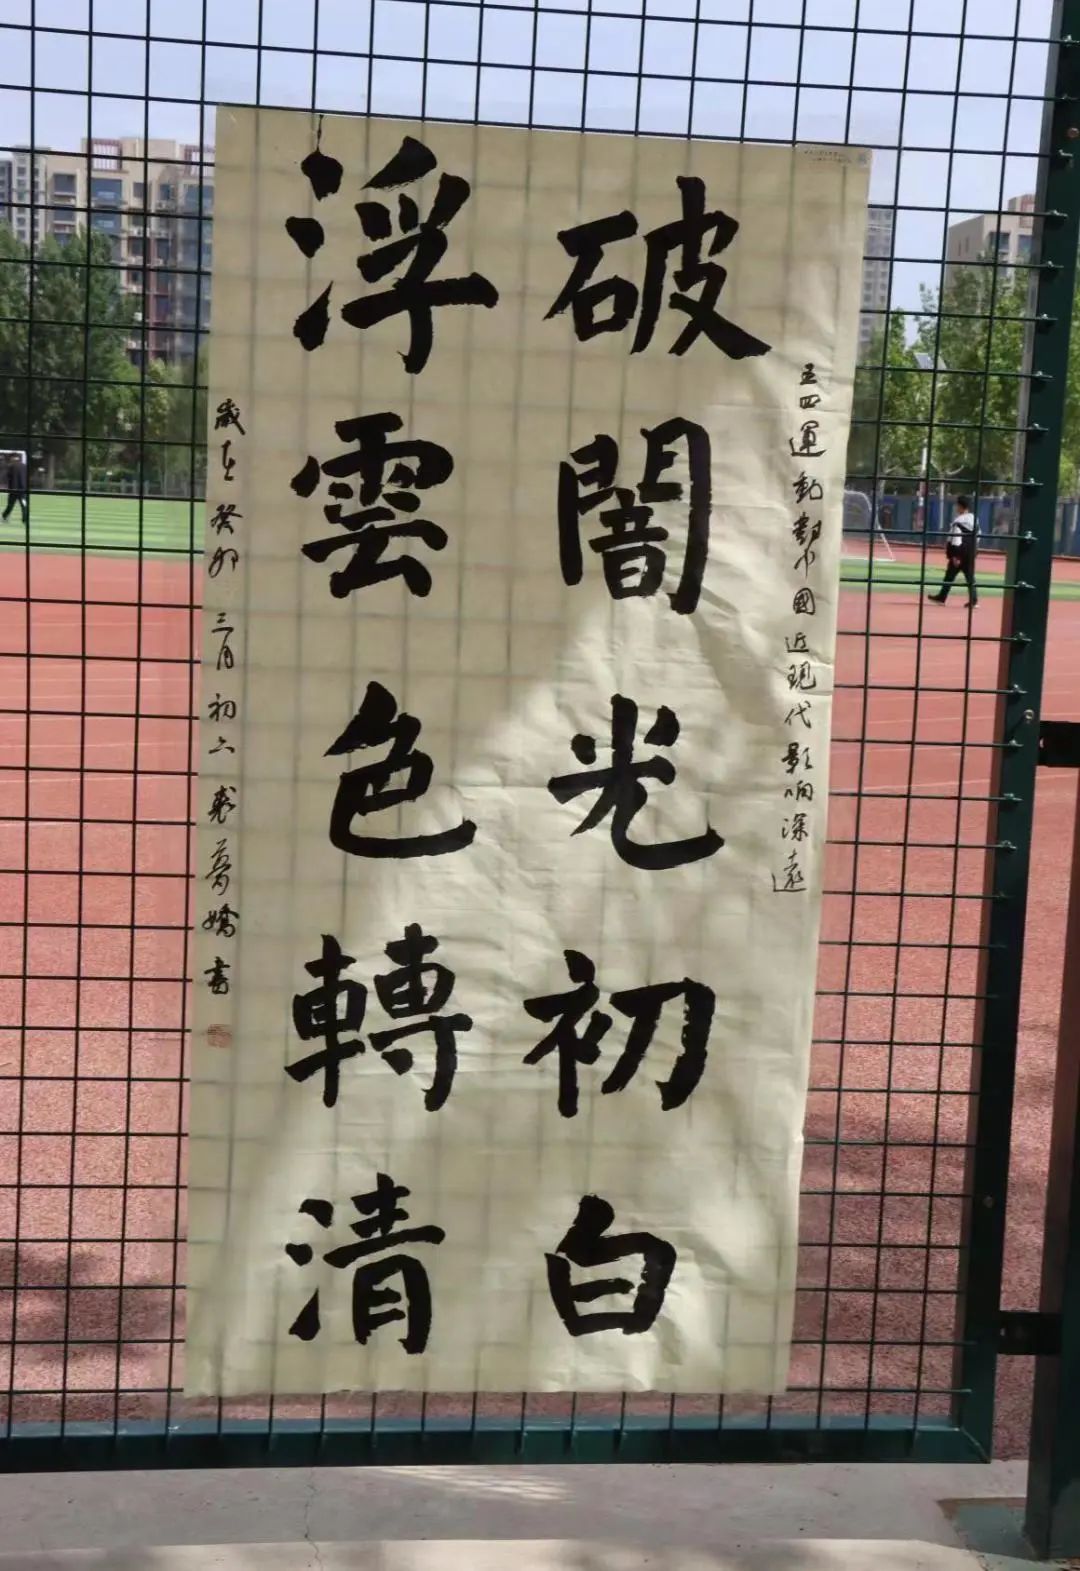 五四運動對中國近現代影响深遠
破闇光初白
浮雲色轉清
歲在癸卯三月初六 夢嬌書